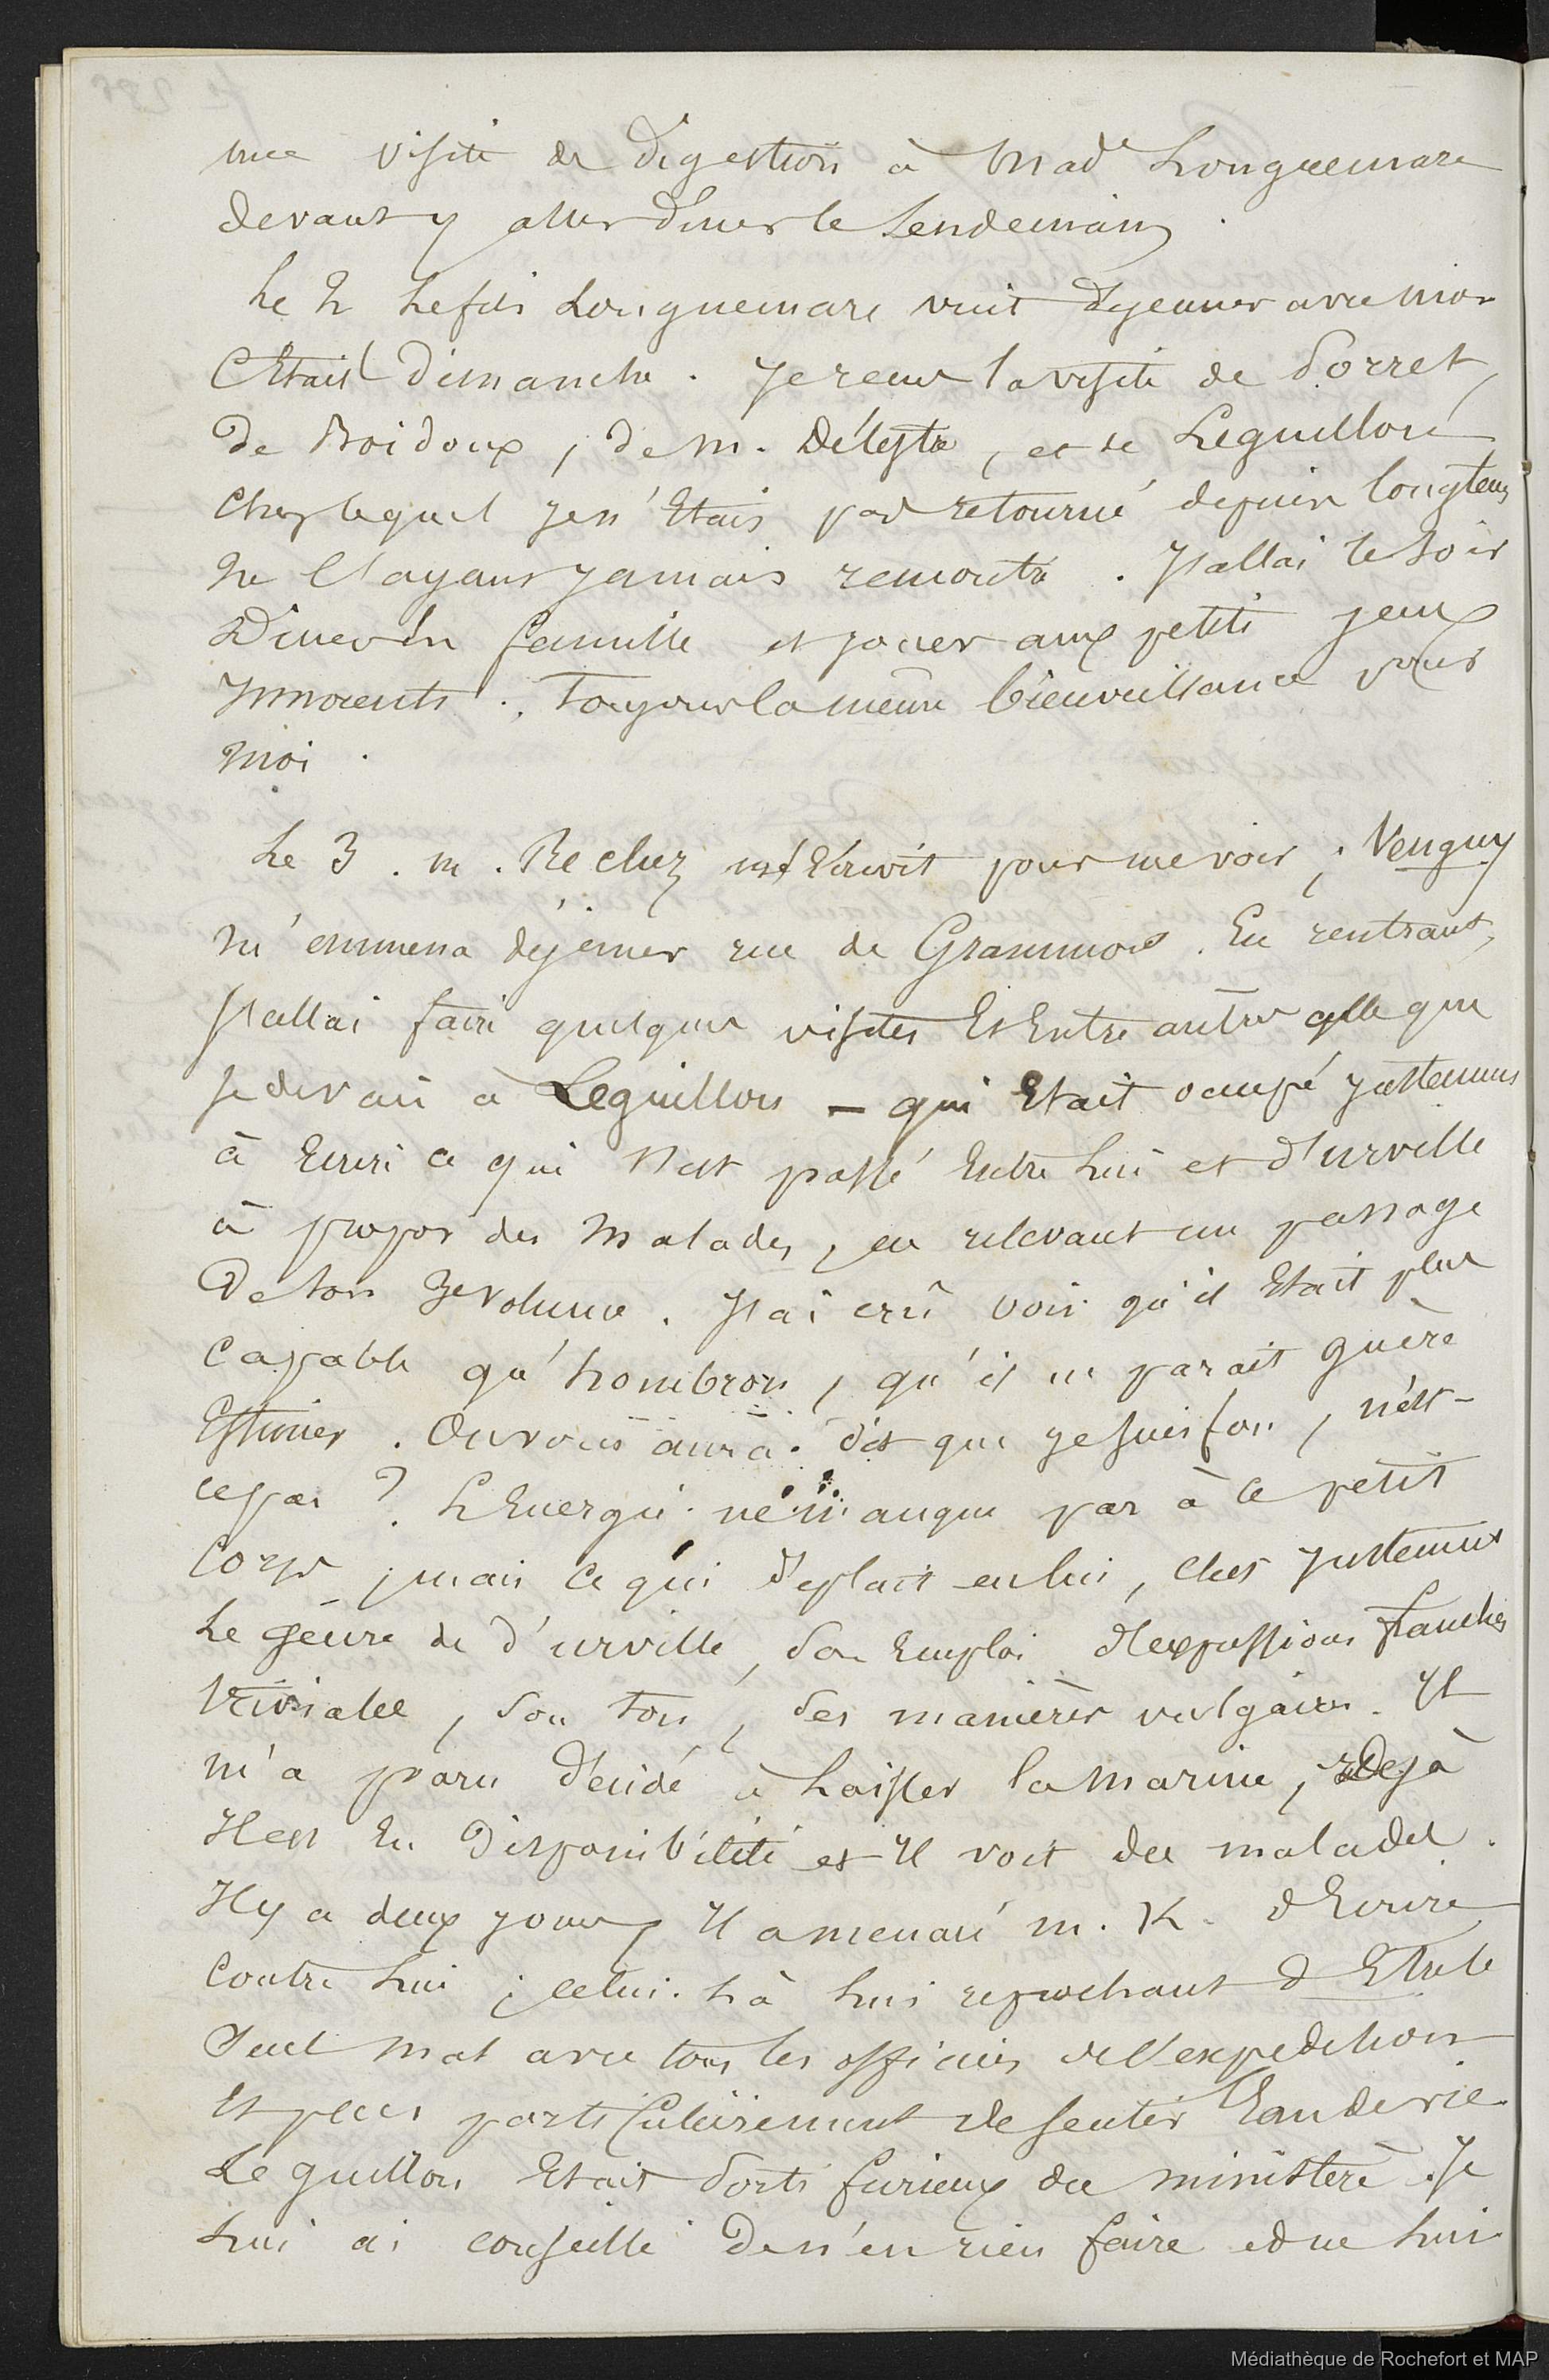 une visite de digestion à Mad^e Longuemare
devant y aller diner le Lendemain.
Le 2 Le fils Longuemare vint déjeuner avec moi
C'Etait Dimanche. Je reçus la visite de Sorret,
de Boidoux, de M. Délestre, et de Leguillou
Chez lequel je n'Etais pas retourné depuis longtems
ne l'ayant jamais rencontré. J'allai le Soir
Diner En famille et jouer aux petits jeux
Innocents. Toujours la même bienveillance pour
moi.
Le 3. M. Recluz m'Ecrivit pour me voir; Venguy
m'emmena déjeuner rue de Grammont. En rentrant,
J'allai faire quelques visites Et Entre autres celle que
je devais à Leguillou – qui Etait occupé justement
à Ecrire ce qui s'est passé Entre Lui et d'urville
à propos des Malades, en relevant un passage
De son 3e volume. J'ai crû voir qu'il Etait plus
Capable qu'hombron, qu'il ne parait guère
Estimer. On vous aura dit que je suis fou, n'est-
ce pas ? L'Energie ne manque pas à ce petit
Corps, mais ce qui déplait en lui, c'est justement
Le genre de d'urville, Son Emploi d'expressions franches
triviales, Son ton, Ses manières vulgaires. Il
m'a paru décidé à Laisser la Marine, Déjà
Il est En Disponibilité et Il voit des malades.
Il y a deux jours, Il a menacé M. K. d'Ecrire
Contre Lui; celui-là Lui reprochant d'Etre le
Seul mal avec tous les officiers de l'expedition
Et plus particulièrement de sentir l'Eau de vie
Le guillou Etait Sorti furieux du ministère. Je
Lui ai conseillé De n'en rien faire et de ne Lui